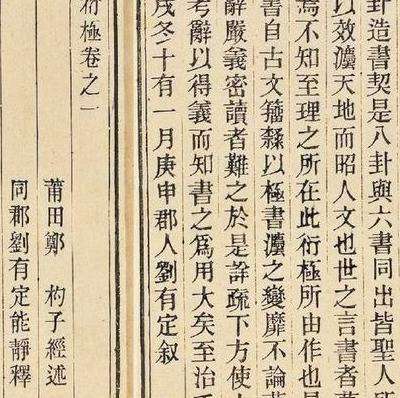 卦造書契是八卦與六書同出皆聖人所
以效灋天地而昭人文也世之言書者
焉不知至理之所在此衍極所由作也
書自古文籀隸以極書灋之變靡不論
辭嚴義密讀者難之於是詳疏下方使
考辭以得義而知書之爲用大矣至治
戌冬十有一月庚申郡人劉有定叙
衍極卷之一
莆田鄭 杓子經述
同郡劉有定能靜釋